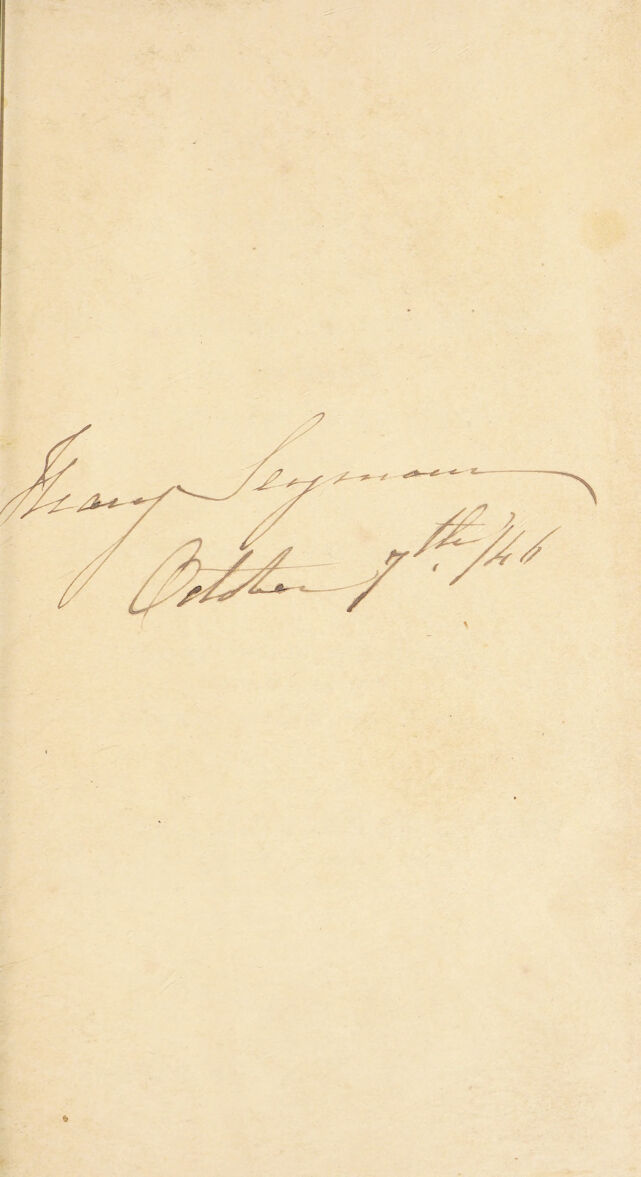 Mary Seymour
October 7th. /46